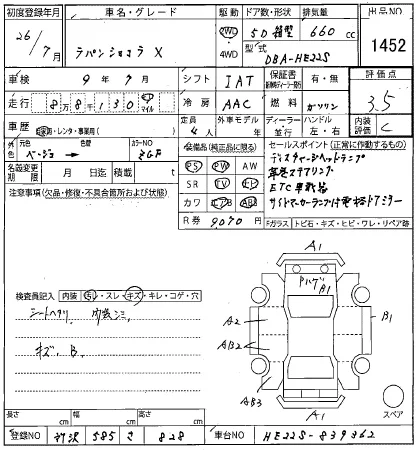 初度登録年月 車名・グレード 駆動 ドア数・形状 排気量 出品NO
26/7月 ラパンショコラ X 2WD 4WD 5D 箱型 660 cc 1452
型式 DBA-HE22S
車検 9年7月 シフト IAT 保証書 有・無 評価点
走行 8万8千130 km マイル 冷房 AAC 燃料 ガソリン 3.5
車歴 自家用・レンタ・事業用( ) 定員 4人 外車モデル ディーラー・並行 ハンドル 左・右 内装評価 C
外色 元色 ベージュ 色替 カラーNO ZGF
装備品(純正品に限る) セールスポイント(正常に作動するもの)
名義変更期限 月 日迄 積載 t
PS PW AW ディスチャージヘッドランプ
SR TV ナビ 革巻ステアリング
カワ エアB ABS ETC車載器
R券 9070円 サイドマーカーランプ付電格ドアミラー
注意事項(欠品・修復・不具合箇所および状態)
Fガラス トビ石・キズ・ヒビ・ワレ・リペア跡
検査員記入 内装 汚レ・スレ・キズ・キレ・コゲ・穴
シートヘタリ 内装シミ
キズ、B、
A1
Pハゲ B1
A2
B1
AB2
AB3
A1
スペア
長さ cm 幅 cm 高さ cm
登録NO 所沢 585 さ 828 車台NO HE22S-839362